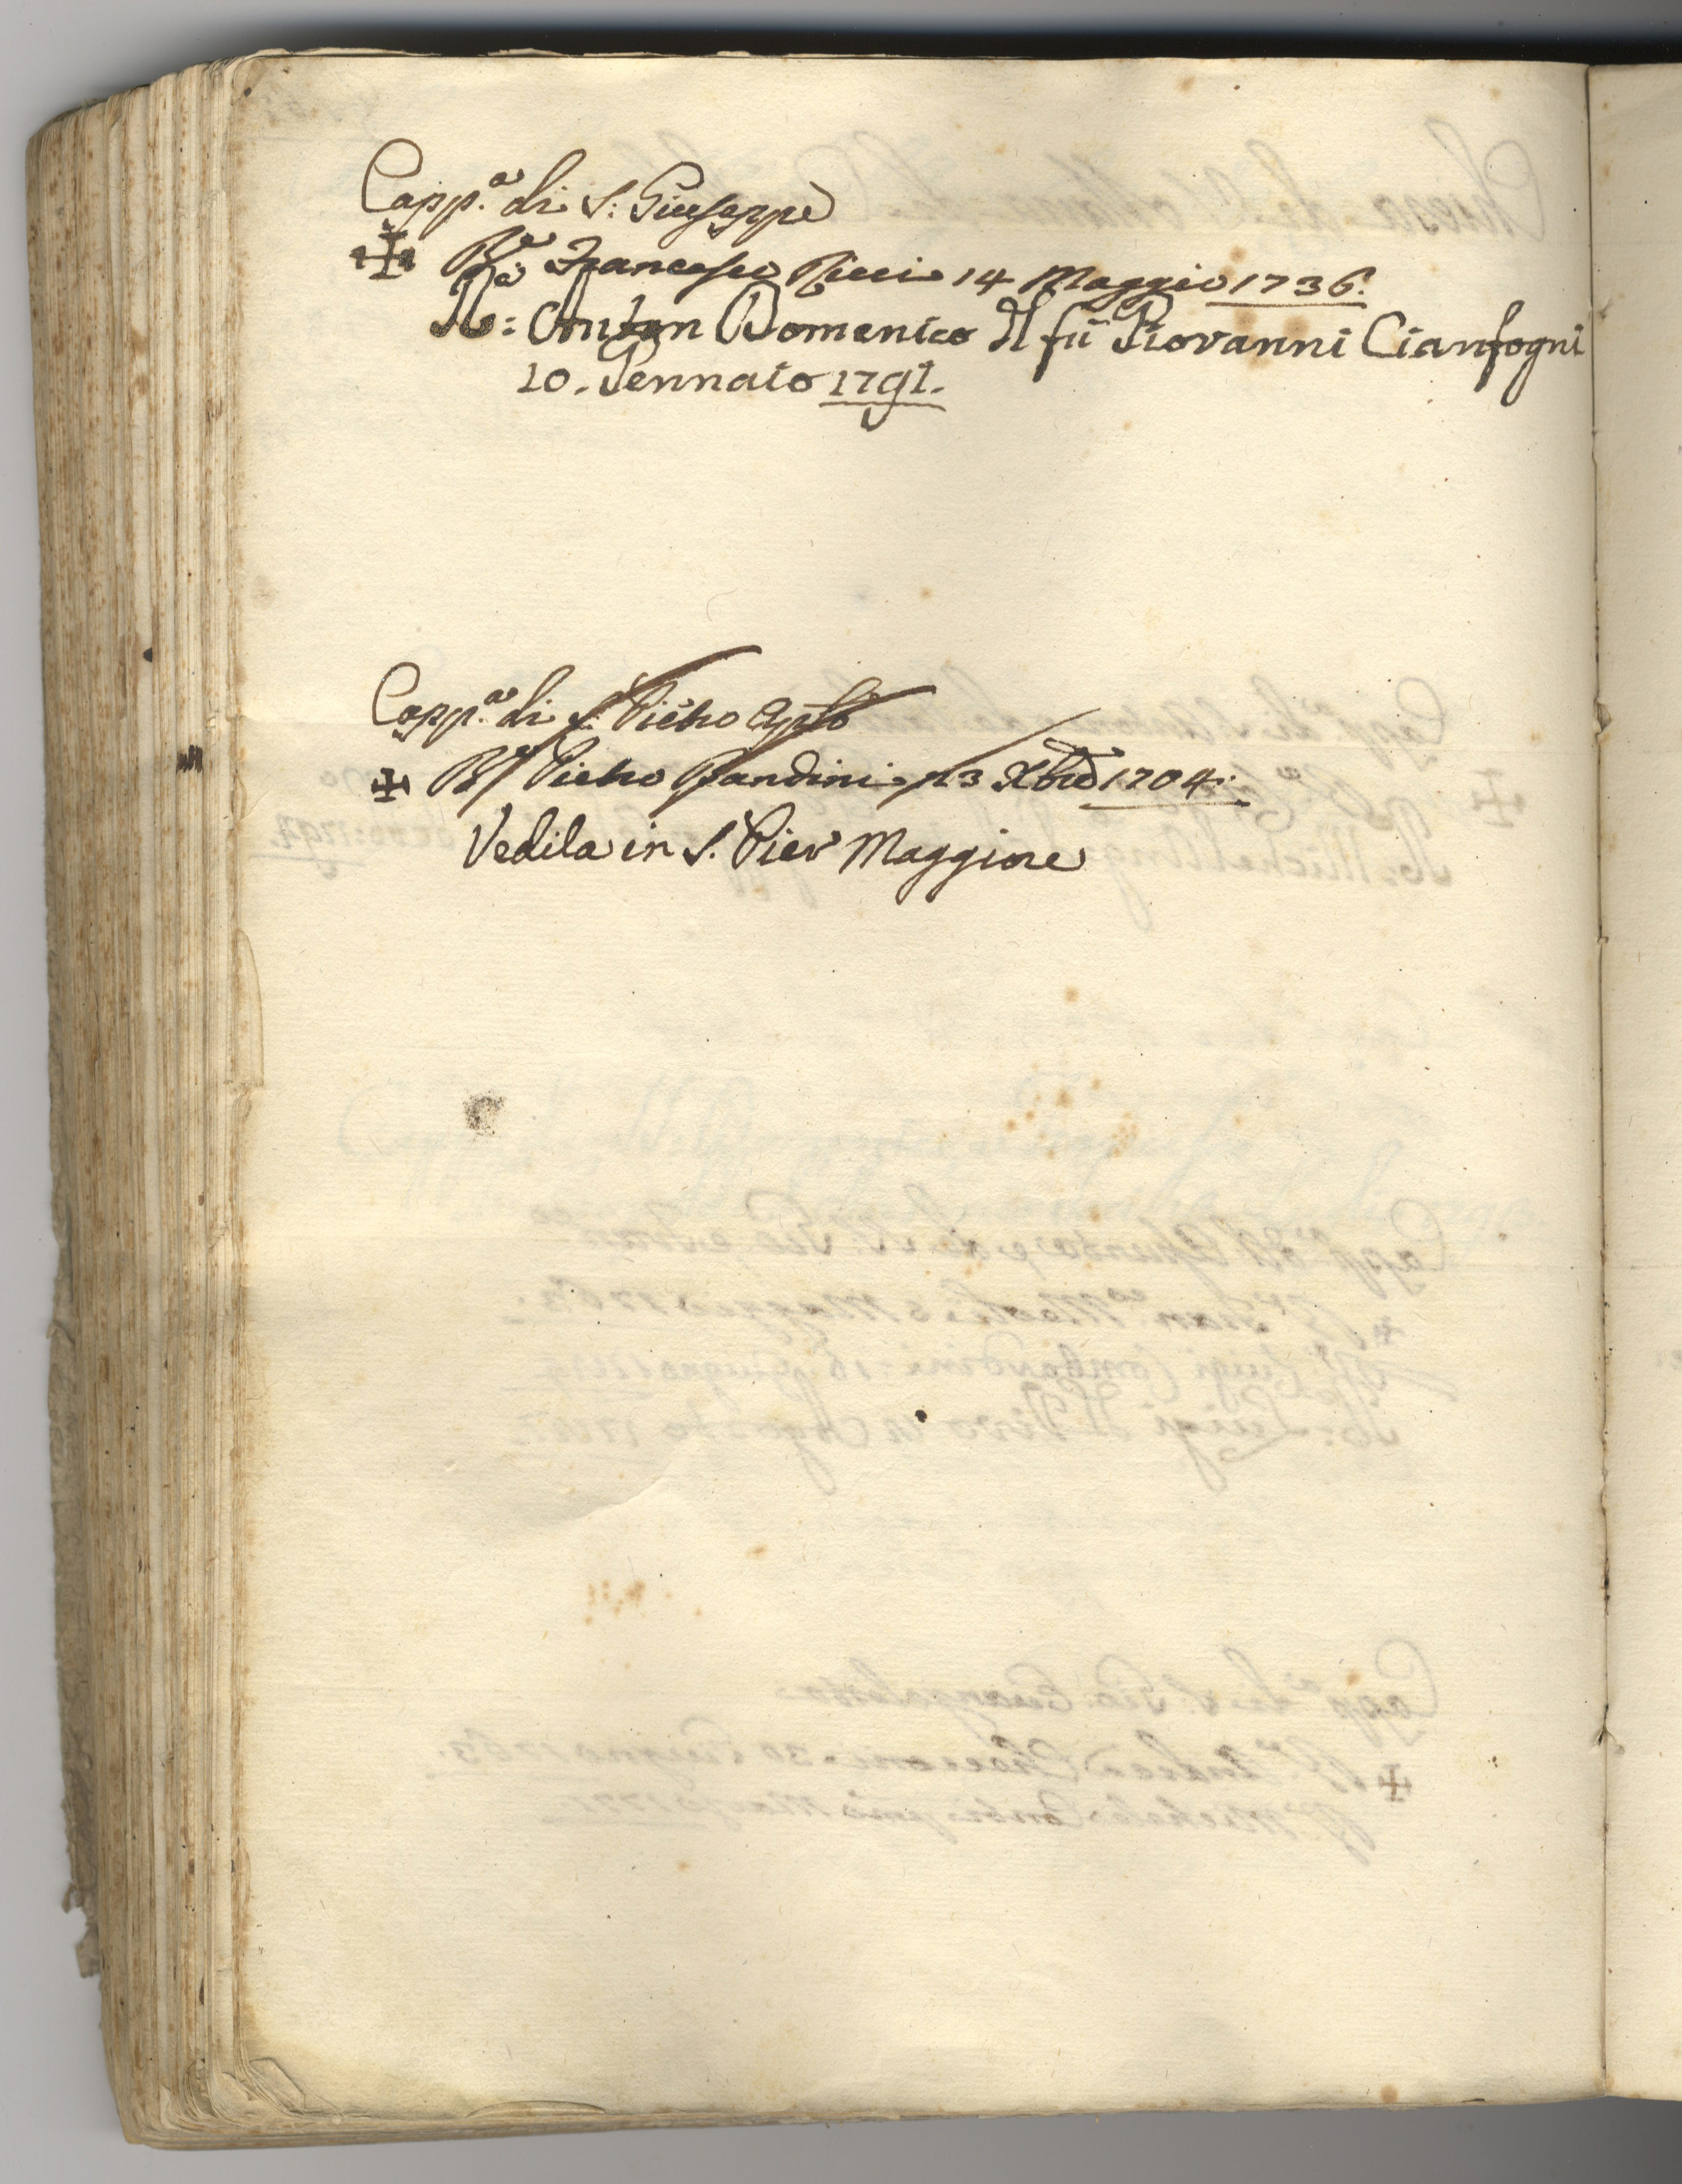 Capp.a di S: Giuseppe
Rd. Francesco Ricci 14 Maggio 1736.
Rd: Anton Domenico d'l fù Giovanni Cianfogni
10. Gennaio 1791.
Capp.a di S: Pietro Aplo
Rd Pietro Bandini 13 Xbre 1704.
Vedila in S. Pier Maggiore